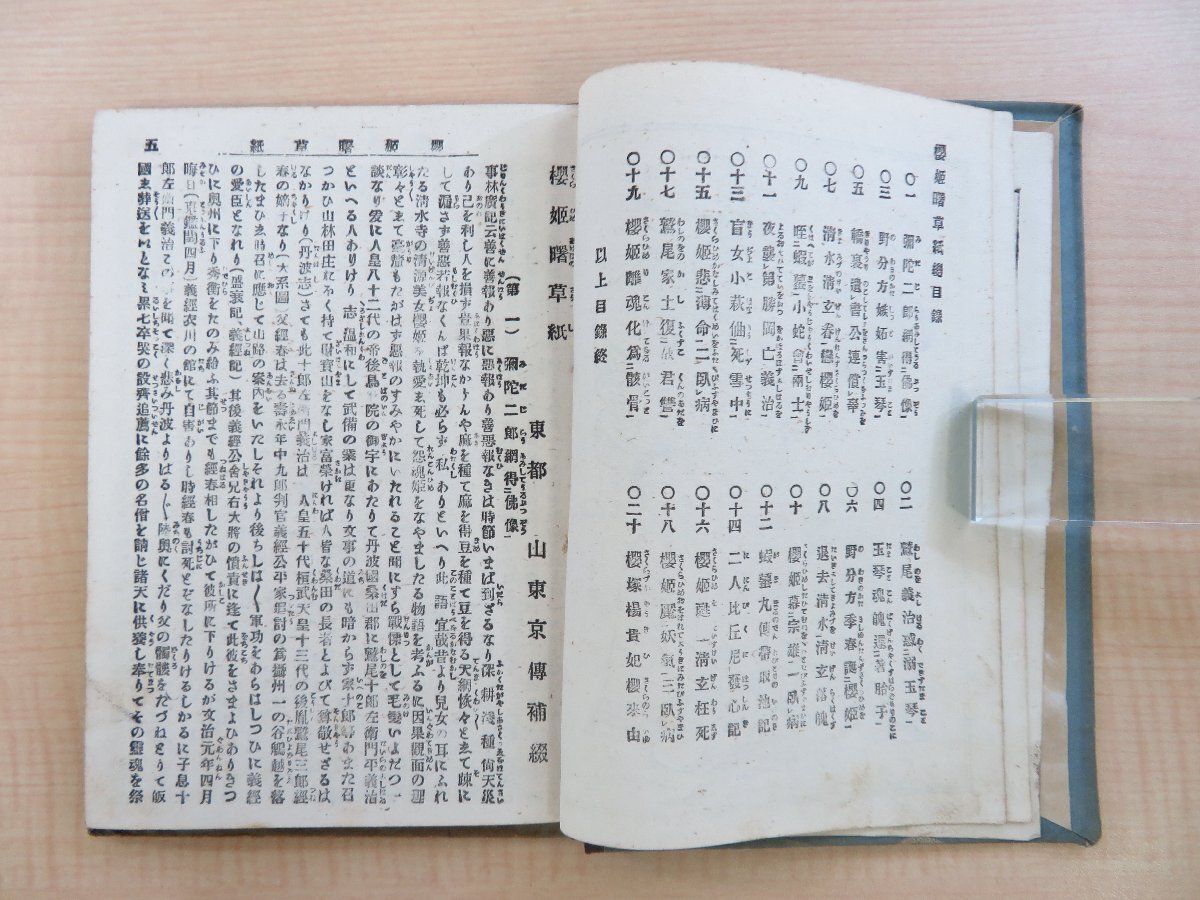 櫻姬曙草紙總目錄
〇一 彌陀二郎網得佛像
〇二 鷲尾義治惑溺玉琴
〇三 野分方嫉妬害玉琴
〇四 玉琴魂魄還著胎子
〇五 轎裏遺書公連償孽
〇六 野分方季春 櫻姬
〇七 清水清玄春戀櫻姬
〇八 退去清水清玄落魄
〇九 蛭蝦蟇小蛇會兩士
〇十 櫻姬慕宗雄臥病
〇十一 夜襲歸勝岡亡義治
〇十二 蝦蟇丸傳
〇十三 盲女小萩仙死雪中
〇十四 二人比丘尼發心記
〇十五 櫻姬悲薄命二臥病
〇十六 櫻姬 清玄枉死
〇十七 鷲尾家士復故君讐
〇十八 櫻姬 妖氣三臥病
〇十九 櫻姬離魂化爲骸骨
〇二十 櫻塚楊貴妃櫻來由
以上目錄終
櫻姬曙草紙 五
櫻姬曙草紙
東都 山東京傳補綴
（第一） 彌陀二郎網得佛像
事林廣記云善に善報あり惡に惡報あり善惡報なきは時節いまば到ざるなり深耕淺種尙天災
あり己を利し人を損す豈果報なからんや麻を種て麻を得豆を種て豆を得る天網恢々とゑて踈に
して漏さず善惡若報なくんば乾坤も必らず私ありといへり此語宜哉昔より兒女の耳にふれ
たる清水寺の清源美女櫻姬を執愛ゑ死して怨魂姬をなやましたる物語を考ふるに因果覿面の理
彰々とゑて毫釐もたがはす惡報のすみやかにいたれること聞にすら戰慄として毛髮いよだつ
談なり爰に人皇八十二代の帝後鳥 院の御宇にあたりて丹波國桑田郡に鷲尾十郎左衞門平義治
といへる人ありけり志溫和にして武備の業は更なり文事の道にも暗からず家 十郎 あまた召
つかひ山林田庄 多く持て財寶山をなし家富榮ければ人皆な桑田の長者とよびて尊敬せざるは
なかりけり（丹波志）さても此十郎左衞門義治は 人皇五十代桓武天皇十三代の後胤鷲尾三郎經
春の嫡子なり（大系圖）父經春は去る壽永年中九郎判官義經公平家追討の爲攝州一の谷鵯越を落
したまひゑ時召に應じて山路の案內をいたしそれより後ちしば〳〵軍功をあらはしつひに義經
の愛臣となれり（盛衰記 義經記）其後義經公舍兄右大將の憤責に逢て此彼をさまよひありきつ
ひに奥州に下り秀衡をたのみ給ふ其節までも經春相したがひて彼所に下りけるが文治元年四月
晦日（東鑑閏四月）義經衣川の館にて自害あり 時經春も討死をなしたりけるしかるに子息十
郎左衞門義治この を聞て深く悲み丹波よりはる〴〵陸奥にくだり父の髑髏をたづねとりて皈
國ゑ葬送を なゑ 七卒哭の散齊追薦に餘多の名僧を請 諸天に供養し奉りてその靈魂を祭